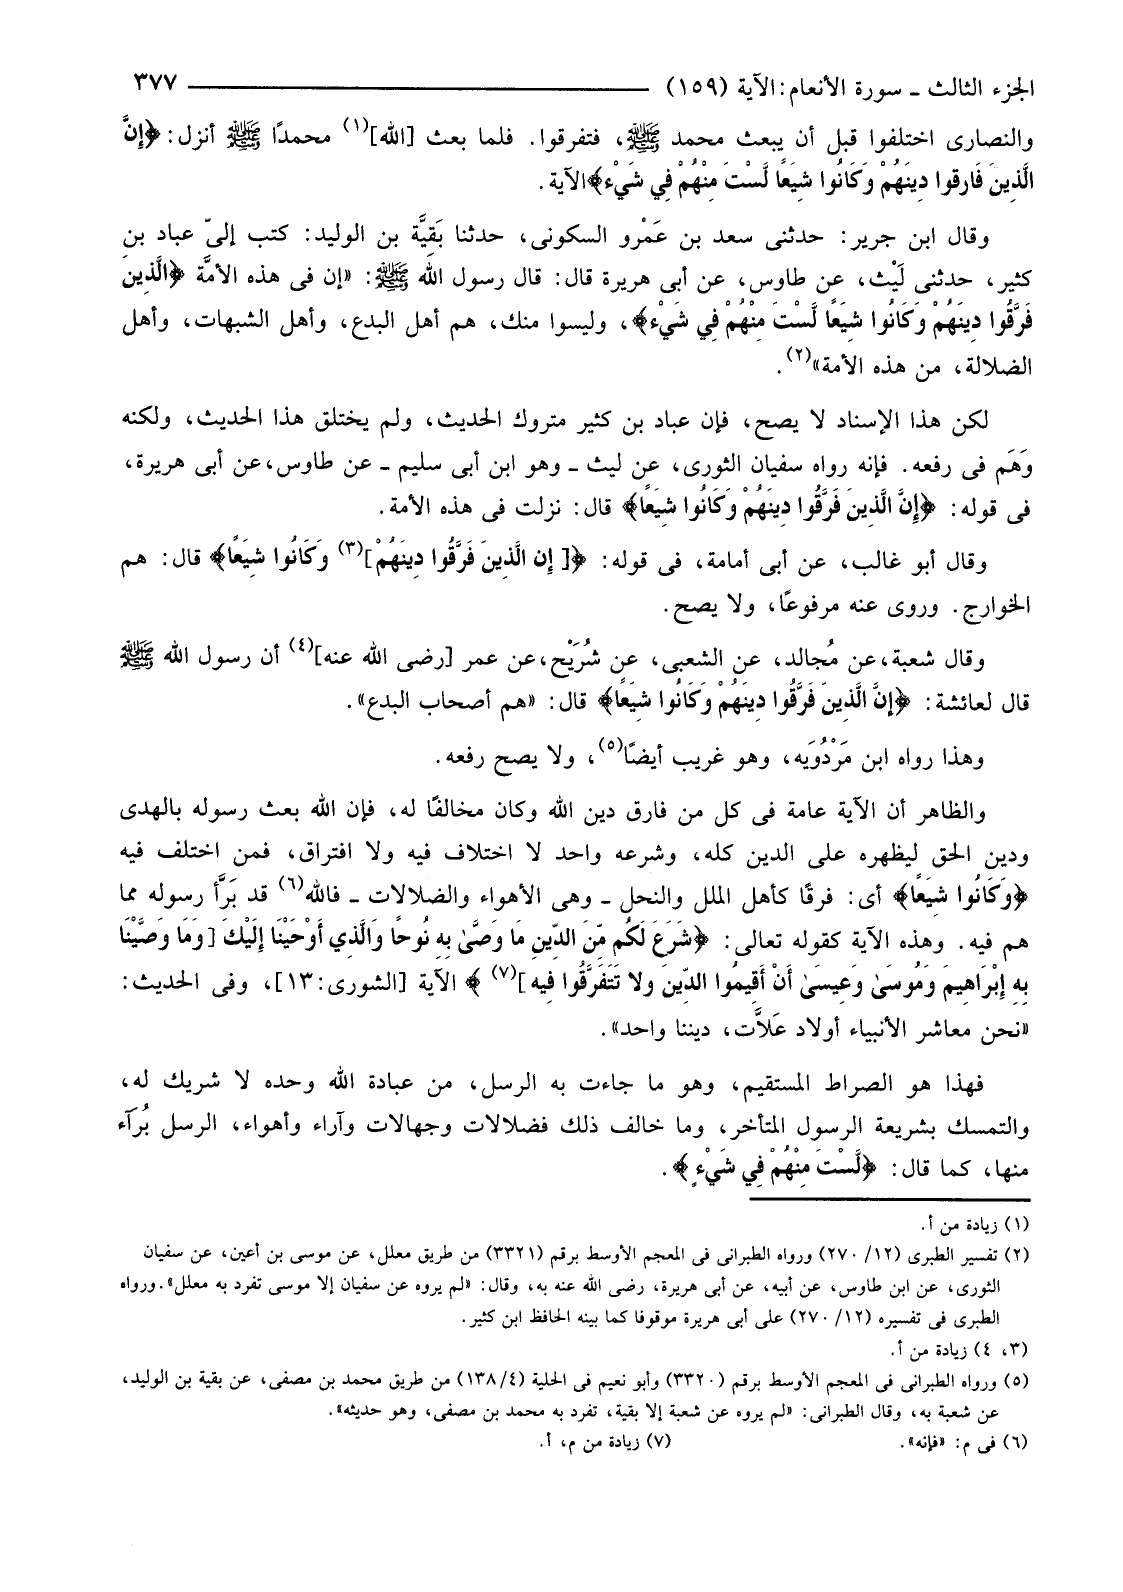 الجزء الثالث ـ سورة الأنعام: الآية (١٥٩) ٣٧٧
والنصارى اختلفوا قبل أن يبعث محمد ﷺ، فتفرقوا. فلما بعث [الله](١) محمدًا ﷺ أنزل: ﴿إِنَّ
الَّذِينَ فَارقوا دِينَهُمْ وَكَانُوا شِيَعًا لَّسْتَ مِنْهُمْ فِي شَيْء﴾الآية.
وقال ابن جرير: حدثنى سعد بن عَمْرو السكونى، حدثنا بَقِيَّة بن الوليد: كتب إلىّ عباد بن
كثير، حدثنى لَيْث، عن طاوس، عن أبى هريرة قال: قال رسول الله ﷺ: «إن فى هذه الأمَّة ﴿الَّذِينَ
فَرَّقُوا دِينَهُمْ وَكَانُوا شِيَعًا لَّسْتَ مِنْهُمْ فِي شَيْء﴾، وليسوا منك، هم أهل البدع، وأهل الشبهات، وأهل
الضلالة، من هذه الأمة»(٢).
لكن هذا الإسناد لا يصح، فإن عباد بن كثير متروك الحديث، ولم يختلق هذا الحديث، ولكنه
وَهَم فى رفعه. فإنه رواه سفيان الثورى، عن ليث ـ وهو ابن أبى سليم ـ عن طاوس،عن أبى هريرة،
فى قوله: ﴿إِنَّ الَّذِينَ فَرَّقُوا دِينَهُمْ وَكَانُوا شِيَعًا﴾ قال: نزلت فى هذه الأمة.
وقال أبو غالب، عن أبى أمامة، فى قوله: ﴿[ إِن الَّذِينَ فَرَّقُوا دِينَهُمْ](٣) وَكَانُوا شِيَعًا﴾ قال: هم
الخوارج. وروى عنه مرفوعًا، ولا يصح.
وقال شعبة،عن مُجالد، عن الشعبى، عن شُرَيْح،عن عمر [رضى الله عنه](٤) أن رسول الله ﷺ
قال لعائشة: ﴿إِنَّ الَّذِينَ فَرَّقُوا دِينَهُمْ وَكَانُوا شِيَعًا﴾ قال: «هم أصحاب البدع».
وهذا رواه ابن مَرْدُوَيه، وهو غريب أيضًا(٥)، ولا يصح رفعه.
والظاهر أن الآية عامة فى كل من فارق دين الله وكان مخالفًا له، فإن الله بعث رسوله بالهدى
ودين الحق ليظهره على الدين كله، وشرعه واحد لا اختلاف فيه ولا افتراق، فمن اختلف فيه
﴿وَكَانُوا شِيَعًا﴾ أى: فرقًا كأهل الملل والنحل ـ وهى الأهواء والضلالات ـ فالله(٦) قد بَرَّأ رسوله مما
هم فيه. وهذه الآية كقوله تعالى: ﴿شَرَعَ لَكُم مِّنَ الدِّينِ مَا وَصَّىٰ بِهِ نُوحًا وَالَّذِي أَوْحَيْنَا إِلَيْكَ [وَمَا وَصَّيْنَا
بِهِ إِبْرَاهِيمَ وَمُوسَىٰ وَعِيسَىٰ أَنْ أَقِيمُوا الدِّينَ ولا تَتَفَرَّقُوا فِيه](٧) ﴾ الآية [الشورى:١٣]، وفى الحديث:
«نحن معاشر الأنبياء أولاد عَلاَّت، ديننا واحد».
فهذا هو الصراط المستقيم، وهو ما جاءت به الرسل، من عبادة الله وحده لا شريك له،
والتمسك بشريعة الرسول المتأخر، وما خالف ذلك فضلالات وجهالات وآراء وأهواء، الرسل بُرآء
منها، كما قال: ﴿لَّسْتَ مِنْهُمْ فِي شَيْءٍ﴾.
(١) زيادة من أ.
(٢) تفسير الطبرى (١٢/ ٢٧٠) ورواه الطبرانى فى المعجم الأوسط برقم (٣٣٢١) من طريق معلل، عن موسى بن أعين، عن سفيان
الثورى، عن ابن طاوس، عن أبيه، عن أبى هريرة، رضى الله عنه به، وقال: «لم يروه عن سفيان إلا موسى تفرد به معلل».ورواه
الطبرى فى تفسيره (١٢/ ٢٧٠) على أبى هريرة موقوفا كما بينه الحافظ ابن كثير.
(٣، ٤) زيادة من أ.
(٥) ورواه الطبرانى فى المعجم الأوسط برقم (٣٣٢٠) وأبو نعيم فى الحلية (١٣٨/٤) من طريق محمد بن مصفى، عن بقية بن الوليد،
عن شعبة به، وقال الطبرانى: «لم يروه عن شعبة إلا بقية، تفرد به محمد بن مصفى، وهو حديثه».
(٦) فى م: «فإنه». (٧) زيادة من م، أ.